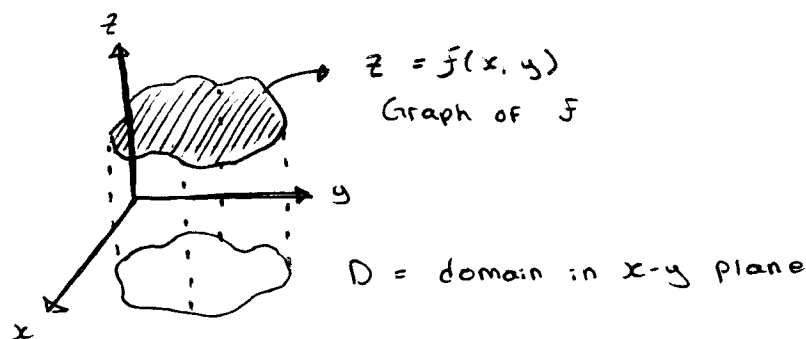 z
z = f(x, y)
Graph of f
y
D = domain in x-y plane
x